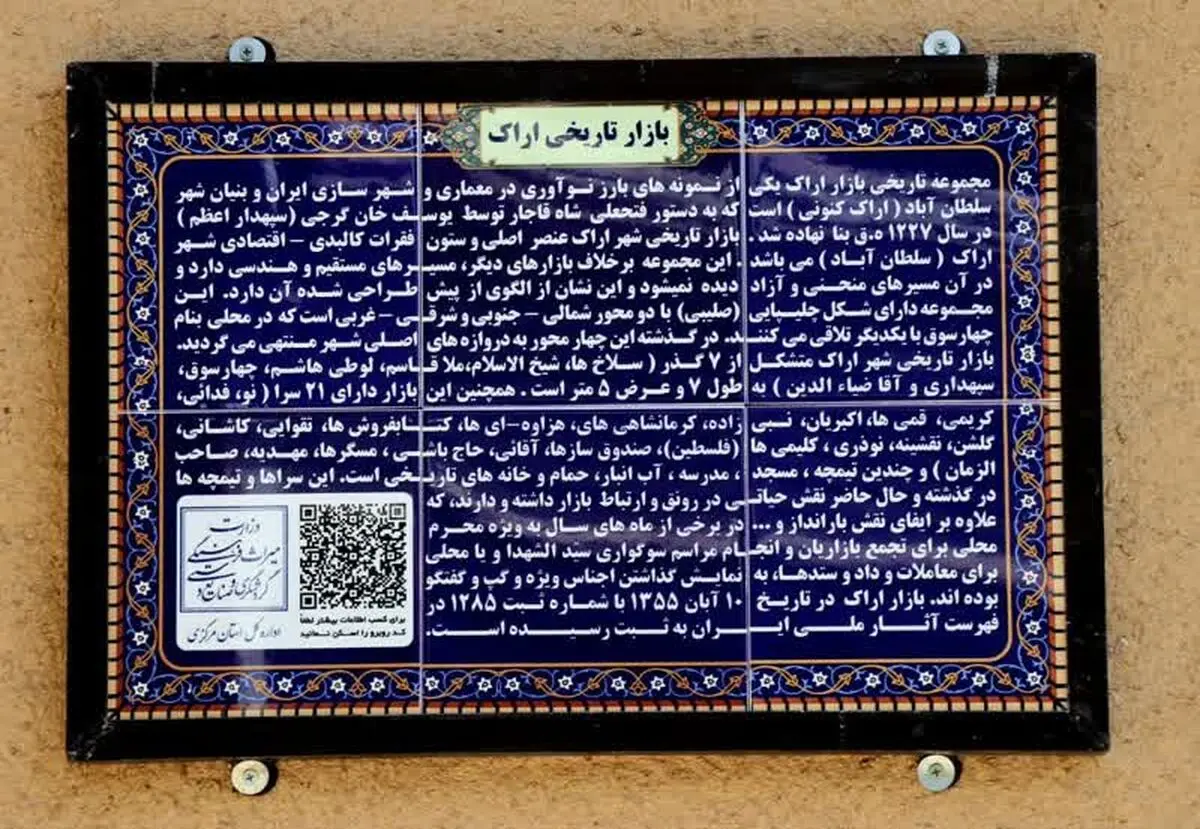 بازار تاریخی اراک
مجموعه تاریخی بازار اراک یکی از نمونه های بارز نوآوری در معماری و شهر سازی ایران و بنیان شهر
سلطان آباد ( اراک کنونی ) است که به دستور فتحعلی شاه قاجار توسط یوسف خان گرجی (سپهدار اعظم )
در سال ۱۲۲۷ ه.ق بنا نهاده شد . بازار تاریخی شهر اراک عنصر اصلی و ستون فقرات کالبدی – اقتصادی شهر
اراک ( سلطان آباد ) می باشد . این مجموعه برخلاف بازارهای دیگر، مسیرهای مستقیم و هندسی دارد و
در آن مسیرهای منحنی و آزاد دیده نمیشود و این نشان از الگوی از پیش طراحی شده آن دارد. این
مجموعه دارای شکل چلیپایی (صلیبی) با دو محور شمالی – جنوبی و شرقی – غربی است که در محلی بنام
چهارسوق با یکدیگر تلاقی می کنند. در گذشته این چهار محور به دروازه های اصلی شهر منتهی می گردید.
بازار تاریخی شهر اراک متشکل از ۷ گذر ( سلاخ ها، شیخ الاسلام،ملا قاسم، لوطی هاشم، چهارسوق،
سپهداری و آقا ضیاء الدین ) به طول ۷ و عرض ۵ متر است . همچنین این بازار دارای ۲۱ سرا ( نو، فدائی،
کریمی، قمی ها، اکبریان، نبی زاده، کرمانشاهی های، هزاوه-ای ها، کتابفروش ها، تقوایی، کاشانی،
گلشن، نقشینه، نوذری ، کلیمی ها (فلسطین)، صندوق سازها، آقائی، حاج باشی ، مسگرها، مهدیه، صاحب
الزمان ) و چندین تیمچه ، مسجد ، مدرسه ، آب انبار، حمام و خانه های تاریخی است. این سراها و تیمچه ها
در گذشته و حال حاضر نقش حیاتی در رونق و ارتباط بازار داشته و دارند، که
علاوه بر ایفای نقش بارانداز و ... در برخی از ماه های سال به ویژه محرم
محلی برای تجمع بازاریان و انجام مراسم سوگواری سیّد الشهدا و یا محلی
برای معاملات و داد و ستدها، به نمایش گذاشتن اجناس ویژه و گپ و گفتگو
بوده اند. بازار اراک در تاریخ ۱۰ آبان ۱۳۵۵ با شماره ثبت ۱۲۸۵ در
فهرست آثار ملی ایران به ثبت رسیده است.
وزارت
میراث فرهنگی
گردشگری و صنایع دستی
اداره کل استان مرکزی
برای کسب اطلاعات بیشتر لطفا
کد روبرو را اسکن نمائید